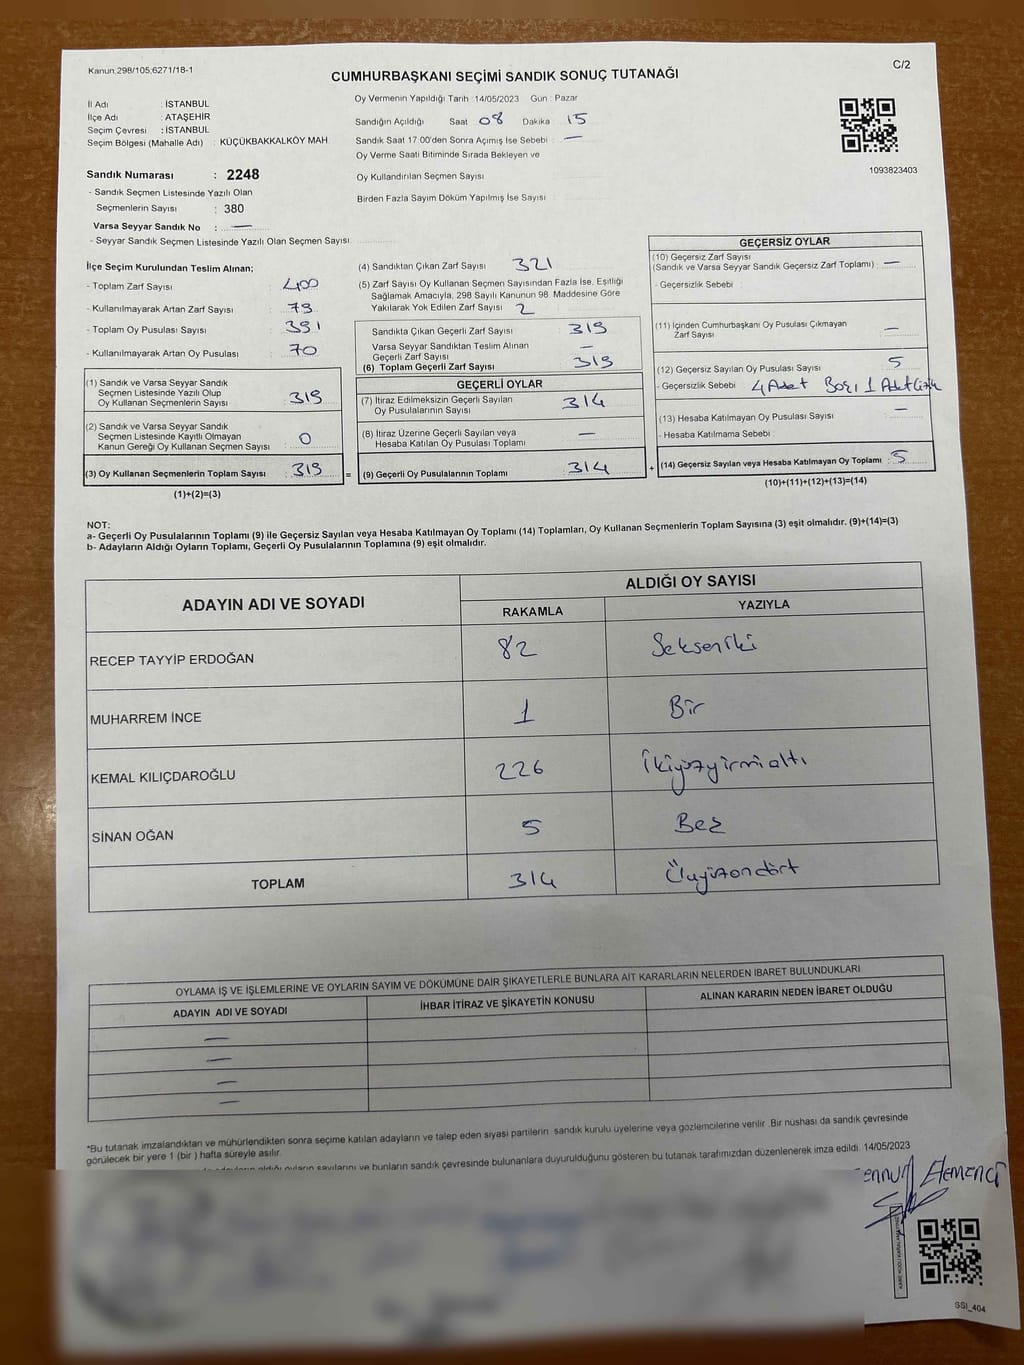 Kanun:298/105;6271/18-1
C/2
CUMHURBAŞKANI SEÇİMİ SANDIK SONUÇ TUTANAĞI
İl Adı : İSTANBUL
İlçe Adı : ATAŞEHİR
Seçim Çevresi : İSTANBUL
Seçim Bölgesi (Mahalle Adı) : KÜÇÜKBAKKALKÖY MAH
Sandık Numarası : 2248
- Sandık Seçmen Listesinde Yazılı Olan
Seçmenlerin Sayısı : 380
Varsa Seyyar Sandık No : —
- Seyyar Sandık Seçmen Listesinde Yazılı Olan Seçmen Sayısı:
Oy Vermenin Yapıldığı Tarih : 14/05/2023 Gün : Pazar
Sandığın Açıldığı Saat 08 Dakika 15
Sandık Saat 17.00'den Sonra Açımış İse Sebebi : —
Oy Verme Saati Bitiminde Sırada Bekleyen ve
Oy Kullandırılan Seçmen Sayısı
Birden Fazla Sayım Döküm Yapılmış İse Sayısı
1093823403
İlçe Seçim Kurulundan Teslim Alınan;
- Toplam Zarf Sayısı : 400
- Kullanılmayarak Artan Zarf Sayısı : 79
- Toplam Oy Pusulası Sayısı : 391
- Kullanılmayarak Artan Oy Pusulası : 70
(1) Sandık ve Varsa Seyyar Sandık
Seçmen Listesinde Yazılı Olup
Oy Kullanan Seçmenlerin Sayısı : 319
(2) Sandık ve Varsa Seyyar Sandık
Seçmen Listesinde Kayıtlı Olmayan
Kanun Gereği Oy Kullanan Seçmen Sayısı : 0
(3) Oy Kullanan Seçmenlerin Toplam Sayısı : 319
(1)+(2)=(3)
=
(4) Sandıktan Çıkan Zarf Sayısı 321
(5) Zarf Sayısı Oy Kullanan Seçmen Sayısından Fazla İse, Eşitliği
Sağlamak Amacıyla, 298 Sayılı Kanunun 98. Maddesine Göre
Yakılarak Yok Edilen Zarf Sayısı : 2
Sandıkta Çıkan Geçerli Zarf Sayısı : 319
Varsa Seyyar Sandıktan Teslim Alınan
Geçerli Zarf Sayısı : —
(6) Toplam Geçerli Zarf Sayısı : 319
GEÇERLİ OYLAR
(7) İtiraz Edilmeksizin Geçerli Sayılan
Oy Pusulalarının Sayısı : 314
(8) İtiraz Üzerine Geçerli Sayılan veya
Hesaba Katılan Oy Pusulası Toplamı : —
(9) Geçerli Oy Pusulalarının Toplamı : 314
+
GEÇERSİZ OYLAR
(10) Geçersiz Zarf Sayısı
(Sandık ve Varsa Seyyar Sandık Geçersiz Zarf Toplamı) : —
- Geçersizlik Sebebi :
(11) İçinden Cumhurbaşkanı Oy Pusulası Çıkmayan
Zarf Sayısı : —
(12) Geçersiz Sayılan Oy Pusulası Sayısı : 5
- Geçersizlik Sebebi : 4 Adet 1 Adet
(13) Hesaba Katılmayan Oy Pusulası Sayısı : —
- Hesaba Katılmama Sebebi :
(14) Geçersiz Sayılan veya Hesaba Katılmayan Oy Toplamı : 5
(10)+(11)+(12)+(13)=(14)
NOT:
a- Geçerli Oy Pusulalarının Toplamı (9) ile Geçersiz Sayılan veya Hesaba Katılmayan Oy Toplamı (14) Toplamları, Oy Kullanan Seçmenlerin Toplam Sayısına (3) eşit olmalıdır. (9)+(14)=(3)
b- Adayların Aldığı Oyların Toplamı, Geçerli Oy Pusulalarının Toplamına (9) eşit olmalıdır.
ADAYIN ADI VE SOYADI
ALDIĞI OY SAYISI
RAKAMLA YAZIYLA
RECEP TAYYİP ERDOĞAN 82 Sekseniki
MUHARREM İNCE 1 Bir
KEMAL KILIÇDAROĞLU 226 İkiyüzyirmialtı
SİNAN OĞAN 5 Beş
TOPLAM 314 Üçyüzondört
OYLAMA İŞ VE İŞLEMLERİNE VE OYLARIN SAYIM VE DÖKÜMÜNE DAİR ŞİKAYETLERLE BUNLARA AİT KARARLARIN NELERDEN İBARET BULUNDUKLARI
ADAYIN ADI VE SOYADI İHBAR İTİRAZ VE ŞİKAYETİN KONUSU ALINAN KARARIN NEDEN İBARET OLDUĞU
—
—
—
—
*Bu tutanak imzalandıktan ve mühürlendikten sonra seçime katılan adayların ve talep eden siyasi partilerin sandık kurulu üyelerine veya gözlemcilerine verilir. Bir nüshası da sandık çevresinde
görülecek bir yere 1 (bir ) hafta süreyle asılır.
adayların aldığı oyların sayılarını ve bunların sandık çevresinde bulunanlara duyurulduğunu gösteren bu tutanak tarafımızdan düzenlenerek imza edildi. 14/05/2023
SSI_404